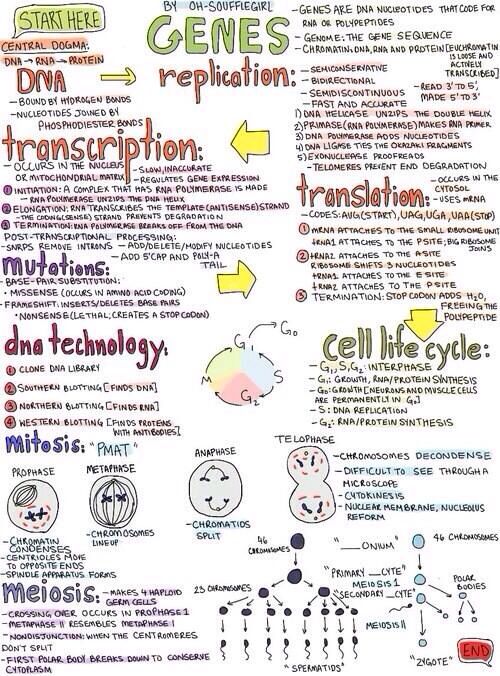 START HERE
BY OH-SOUFFLEGIRL
GENES
-GENES ARE DNA NUCLEOTIDES THAT CODE FOR
RNA OR POLYPEPTIDES
-GENOME: THE GENE SEQUENCE
-CHROMATIN: DNA, RNA AND PROTEIN [EUCHROMATIN
IS LOOSE AND
ACTIVELY
TRANSCRIBED]
CENTRAL DOGMA:
DNA → RNA → PROTEIN
DNA
-BOUND BY HYDROGEN BONDS
-NUCLEOTIDES JOINED BY
PHOSPHODIESTER BONDS
replication:
-SEMICONSERVATIVE
-BIDIRECTIONAL
-SEMIDISCONTINUOUS
-FAST AND ACCURATE
-READ 3' TO 5',
MADE 5' TO 3'
1) DNA HELICASE UNZIPS THE DOUBLE HELIX
2) PRIMASE (RNA POLYMERASE) MAKES RNA PRIMER
3) DNA POLYMERASE ADDS NUCLEOTIDES
4) DNA LIGASE TIES THE OKAZAKI FRAGMENTS
5) EXONUCLEASE PROOFREADS
-TELOMERES PREVENT END DEGRADATION
transcription:
-OCCURS IN THE NUCLEUS
OR MITOCHONDRIAL MATRIX
-SLOW, INACCURATE
-REGULATES GENE EXPRESSION
1 INITIATION: A COMPLEX THAT HAS RNA POLYMERASE IS MADE
-RNA POLYMERASE UNZIPS THE DNA HELIX
2 ELONGATION: RNA TRANSCRIBES THE TEMPLATE (ANTISENSE) STRAND
-THE CODING (SENSE) STRAND PREVENTS DEGRADATION
3 TERMINATION: RNA POLYMERASE BREAKS OFF FROM THE DNA
POST-TRANSCRIPTIONAL PROCESSING:
-SNRPS REMOVE INTRONS
-ADD/DELETE/MODIFY NUCLEOTIDES
-ADD 5' CAP AND POLY-A
TAIL
translation:
-OCCURS IN THE
CYTOSOL
-USES mRNA
-CODES: AUG (START), UAG, UGA, UAA (STOP)
1 mRNA ATTACHES TO THE SMALL RIBOSOME UNIT
tRNA1 ATTACHES TO THE P SITE; BIG RIBOSOME
JOINS
2 tRNA2 ATTACHES TO THE A SITE
RIBOSOME SHIFTS 3 NUCLEOTIDES
tRNA1 ATTACHES TO THE E SITE
tRNA2 ATTACHES TO THE P SITE
3 TERMINATION: STOP CODON ADDS H2O,
FREEING THE
POLYPEPTIDE
mutations:
-BASE-PAIR SUBSTITUTION:
•MISSENSE (OCCURS IN AMINO ACID CODING)
-FRAMESHIFT: INSERTS/DELETES BASE PAIRS
•NONSENSE (LETHAL; CREATES A STOP CODON)
dna technology:
1 CLONE DNA LIBRARY
2 SOUTHERN BLOTTING [FINDS DNA]
3 NORTHERN BLOTTING [FINDS RNA]
4 WESTERN BLOTTING [FINDS PROTEINS
WITH ANTIBODIES]
G0
G1
M
S
G2
cell life cycle:
-G1, S, G2: INTERPHASE
-G1: GROWTH, RNA/PROTEIN SYNTHESIS
-G0: GROWTH [NEURONS AND MUSCLE CELLS
ARE PERMANENTLY IN G0]
-S: DNA REPLICATION
-G2: RNA/PROTEIN SYNTHESIS
mitosis: "PMAT"
PROPHASE
-CHROMATIN
CONDENSES
-CENTRIOLES MOVE
TO OPPOSITE ENDS
-SPINDLE APPARATUS FORMS
METAPHASE
-CHROMOSOMES
LINE UP
ANAPHASE
-CHROMATIDS
SPLIT
TELOPHASE
-CHROMOSOMES DECONDENSE
-DIFFICULT TO SEE THROUGH A
MICROSCOPE
-CYTOKINESIS
-NUCLEAR MEMBRANE, NUCLEOLUS
REFORM
meiosis:
-MAKES 4 HAPLOID
GERM CELLS
-CROSSING OVER OCCURS IN PROPHASE 1
-METAPHASE II RESEMBLES METAPHASE I
-NONDISJUNCTION: WHEN THE CENTROMERES
DON'T SPLIT
-FIRST POLAR BODY BREAKS DOWN TO CONSERVE
CYTOPLASM
46
CHROMOSOMES
"___ONIUM"
46 CHROMOSOMES
"PRIMARY __CYTE"
MEIOSIS 1
23 CHROMOSOMES
"SECONDARY __CYTE"
POLAR
BODIES
MEIOSIS II
"SPERMATIDS"
"ZYGOTE"
END